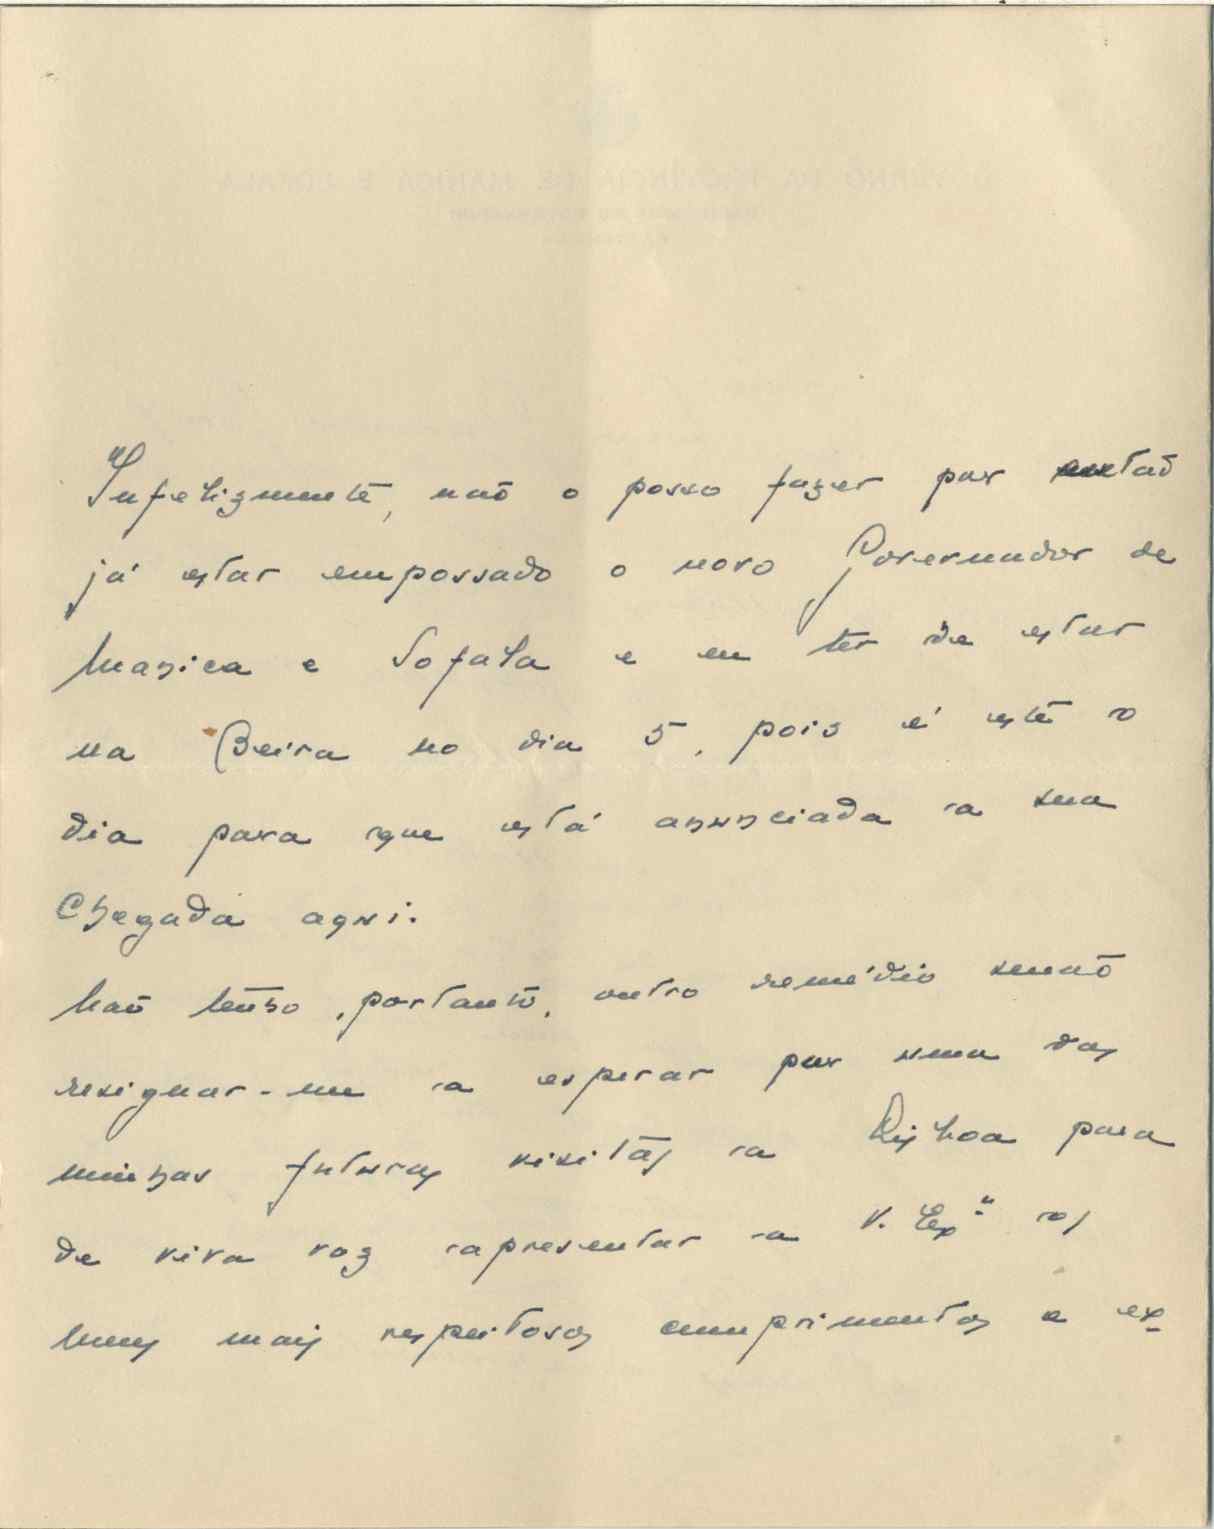 Infelizmente, não o posso fazer por então
já estar empossado o novo Governador de
Manica e Sofala e eu ter de estar
na Beira no dia 5, pois é este o
dia para que está anunciada a sua
chegada aqui.
Não tenho, portanto, outro remédio senão
resignar-me a esperar por uma das
minhas futuras visitas a Lisboa para
de viva voz apresentar a V. Exª os
meus mais respeitosos cumprimentos e ex-